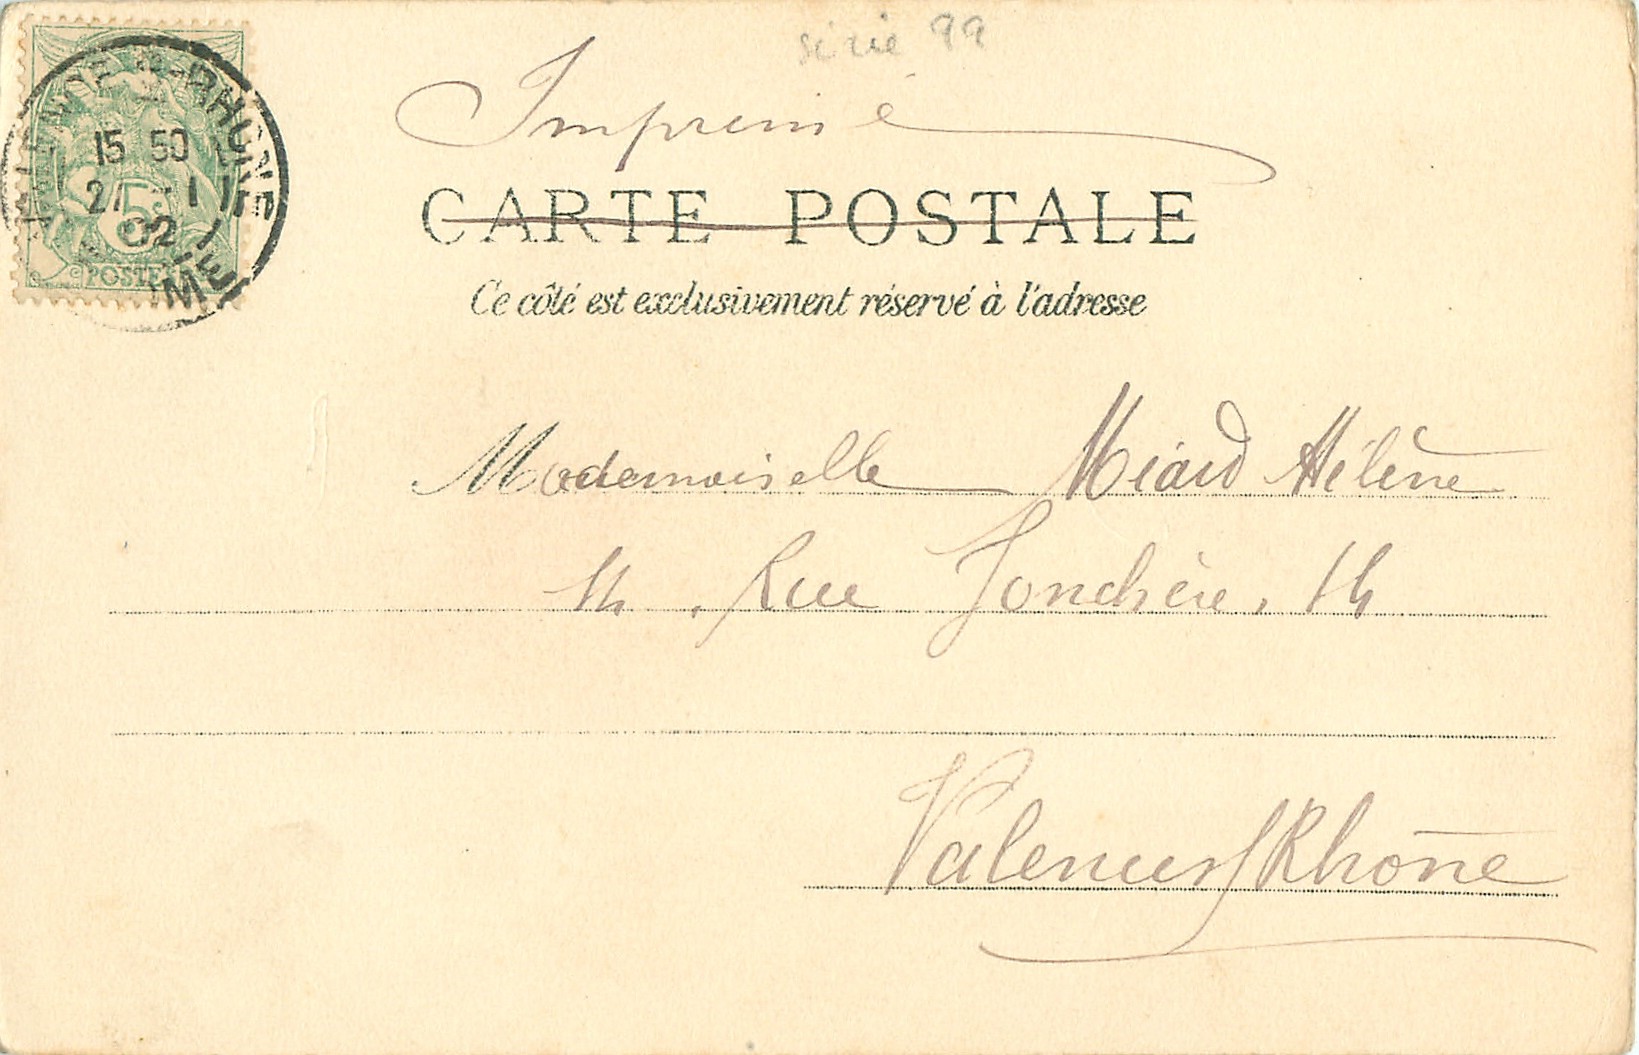 série 99
Imprimé
CARTE POSTALE
Ce côté est exclusivement réservé à l'adresse
15 50
2 -1
02
5c
POSTES
Mademoiselle Miard Hélène
14, Rue Jonchère, 14
Valence s/ Rhône